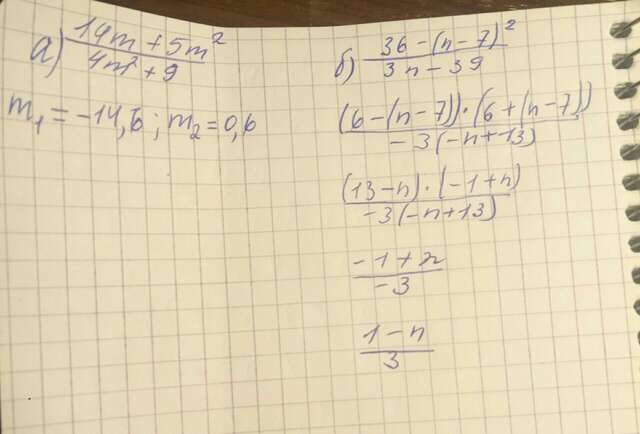 а) (14m + 5m²)/(4m² + 9)
m₁ = -14,6 ; m₂ = 0,6
б) (36 - (n - 7)²)/(3n - 39)
((6 - (n - 7)) · (6 + (n - 7)))/(-3(-n + 13))
((13 - n) · (-1 + n))/(-3(-n + 13))
(-1 + n)/(-3)
(1 - n)/3